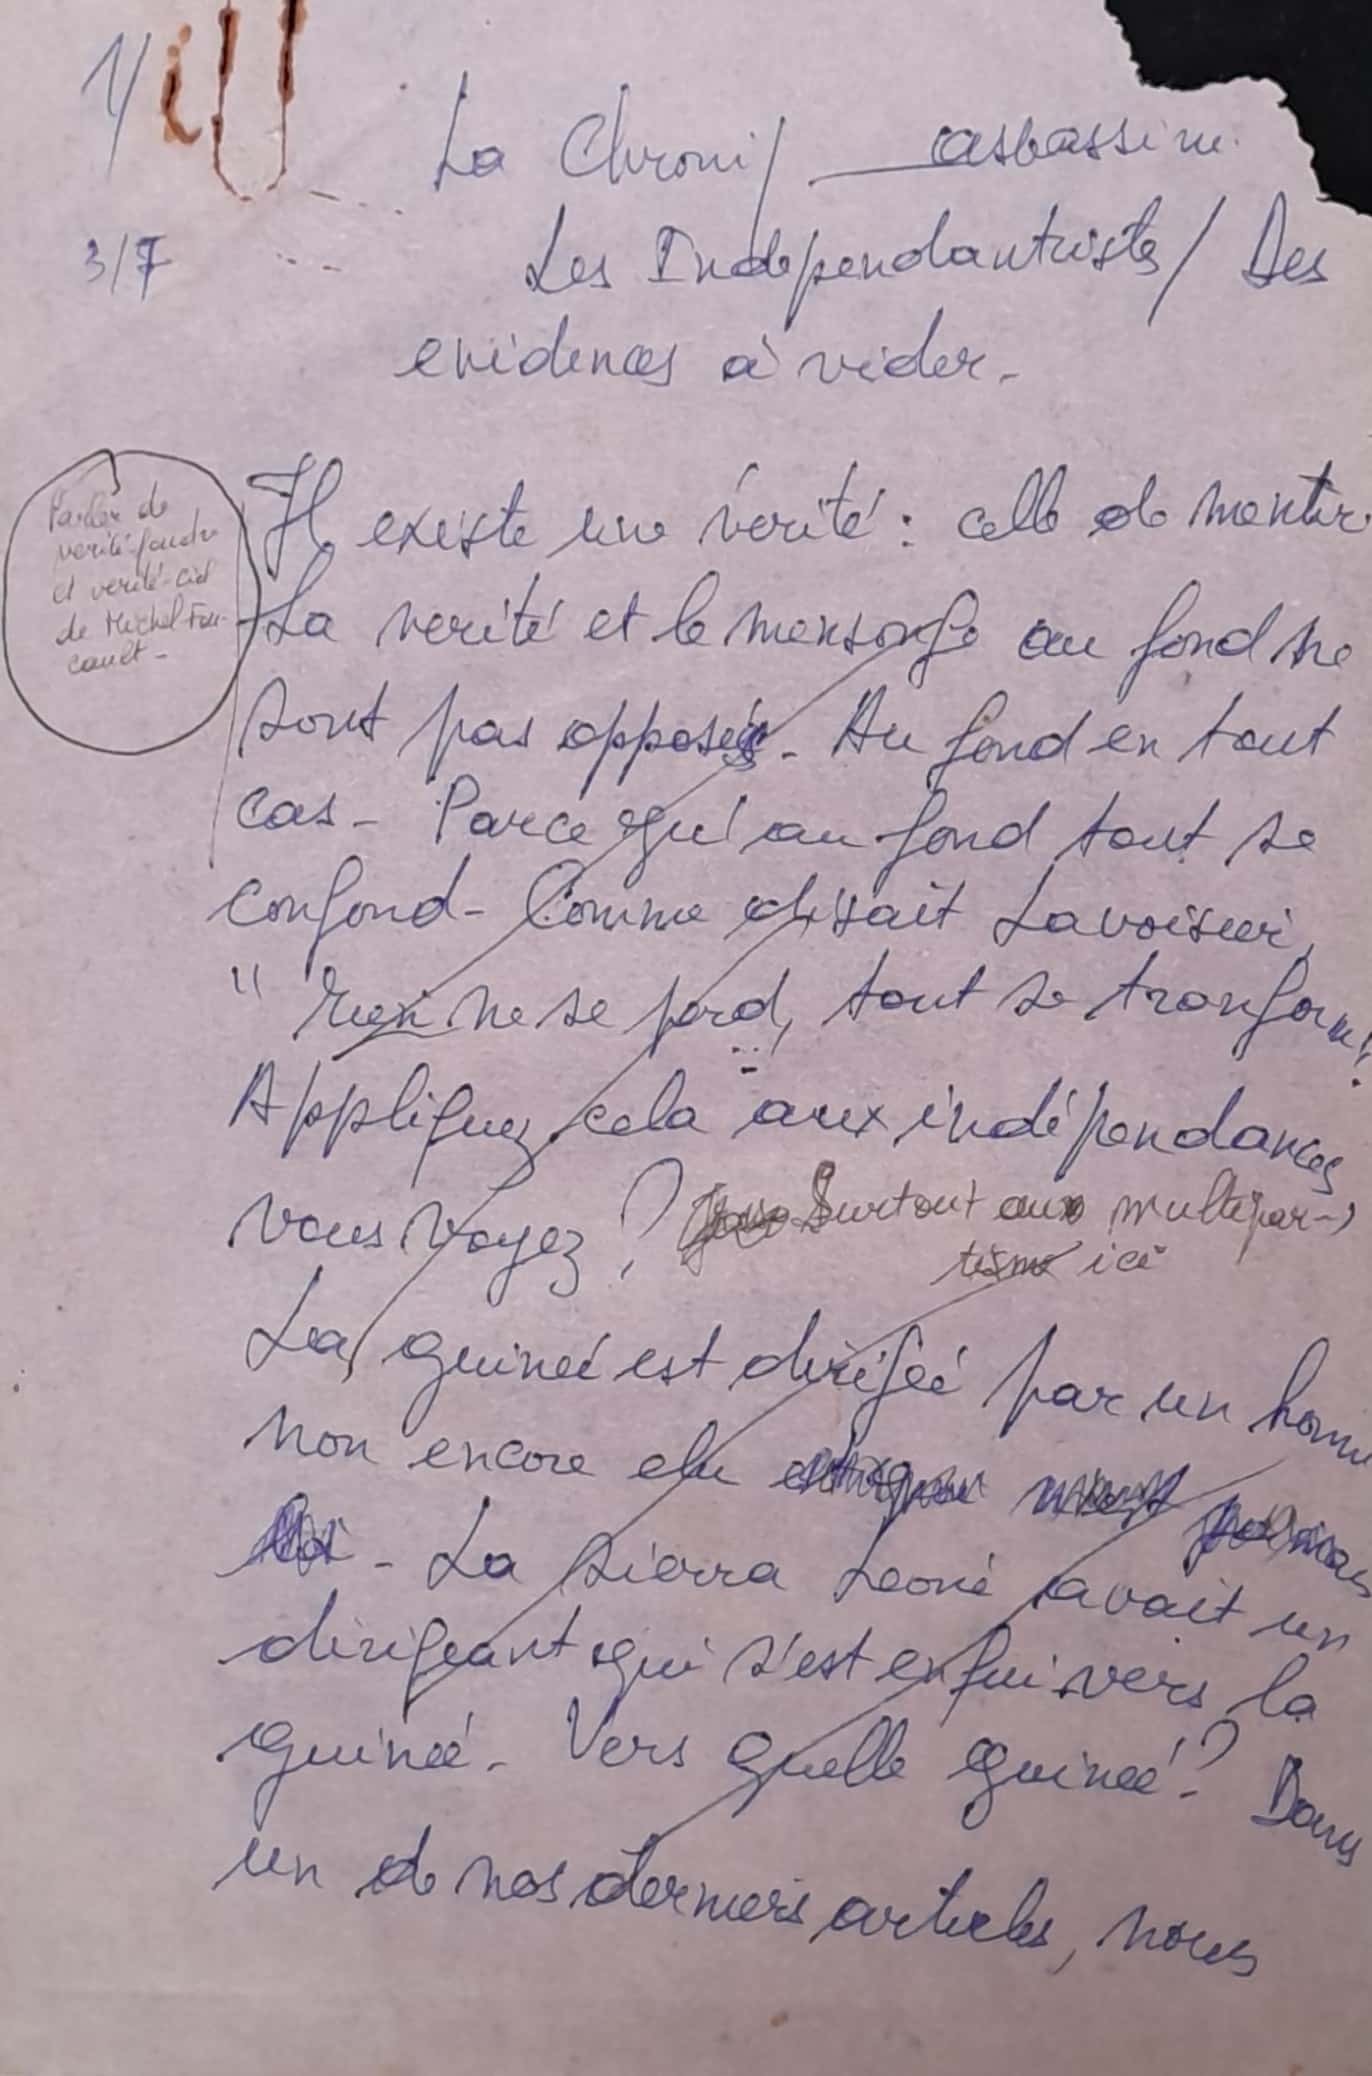 1/
La Chroni/ assassine.
3/7
Les Independantristes / Des
evidences à vider -
Parler de
verité-foudre
et verité-ciel
de Michel Fou-
cault -
Il existe une verité : celle de mentir.
La verité et le mensonge au fond ne
sont pas opposés - Au fond en tout
cas - Parce qu'au fond tout se
confond - Comme disait Lavoisier,
" rien ne se perd, tout se transforme".
Appliquez cela aux indépendances
vous voyez ? Surtout aux multipar-
tisme ici
La guinée est dirigée par un homme
non encore elu
- La Sierra Leone avait un
dirigeant qui s'est enfui vers la
guinée - Vers quelle guinée ? Dans
un de nos derniers articles, nous